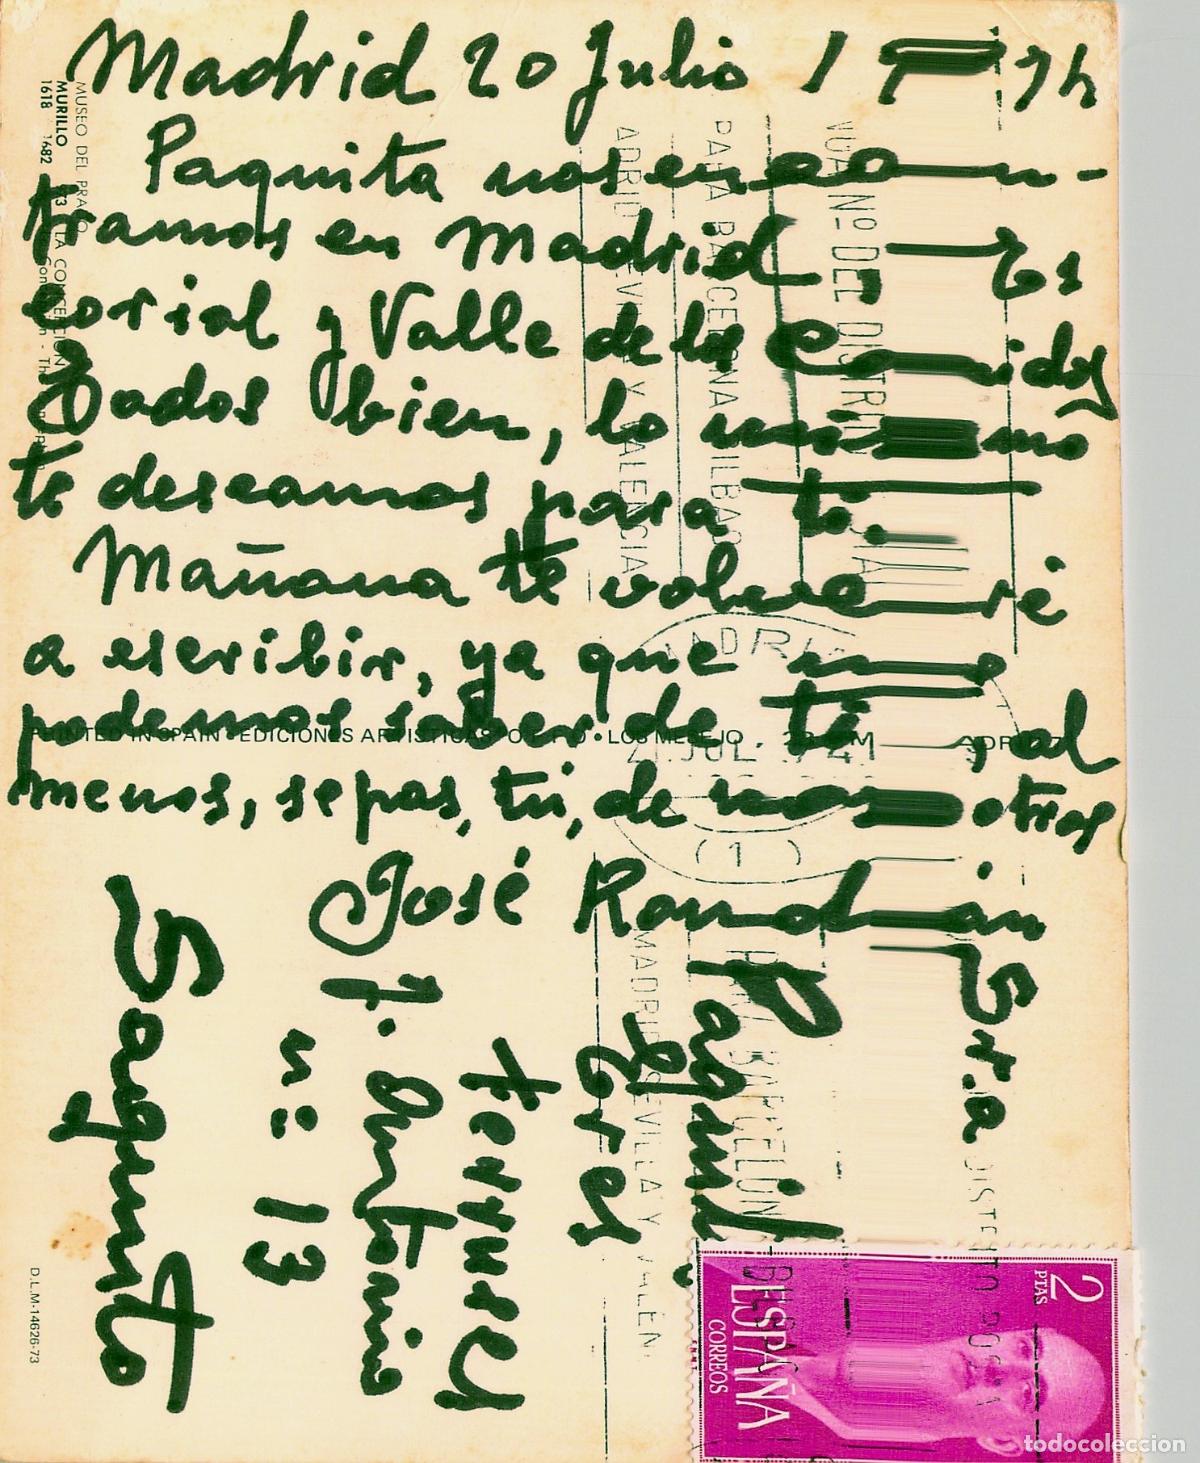 Madrid 20 Julio 1974
Paquita nos encon-
tramos en Madrid, Es
corial y Valle de los Caidos
Todos bien, lo mismo
te deseamos para ti.
Mañana te volveré
a escribir, ya que no
podemos saber de ti, al
menos, sepas, tú, de nosotros
José
Sr.a
Paquita
J. Antonio
n: 13
Sagunto
MUSEO DEL PRADO
MURILLO
1618 1682
LA CONCEPCION
PRINTED IN SPAIN • EDICIONES ARTISTICAS
D.L.M-14626-73
MADRID
21 JUL
(1)
Nº DEL DISTRITO POSTAL
PARA BARCELONA BILBAO
MADRID SEVILLA Y VALENCIA
2 PTAS
ESPAÑA
CORREOS
todocoleccion